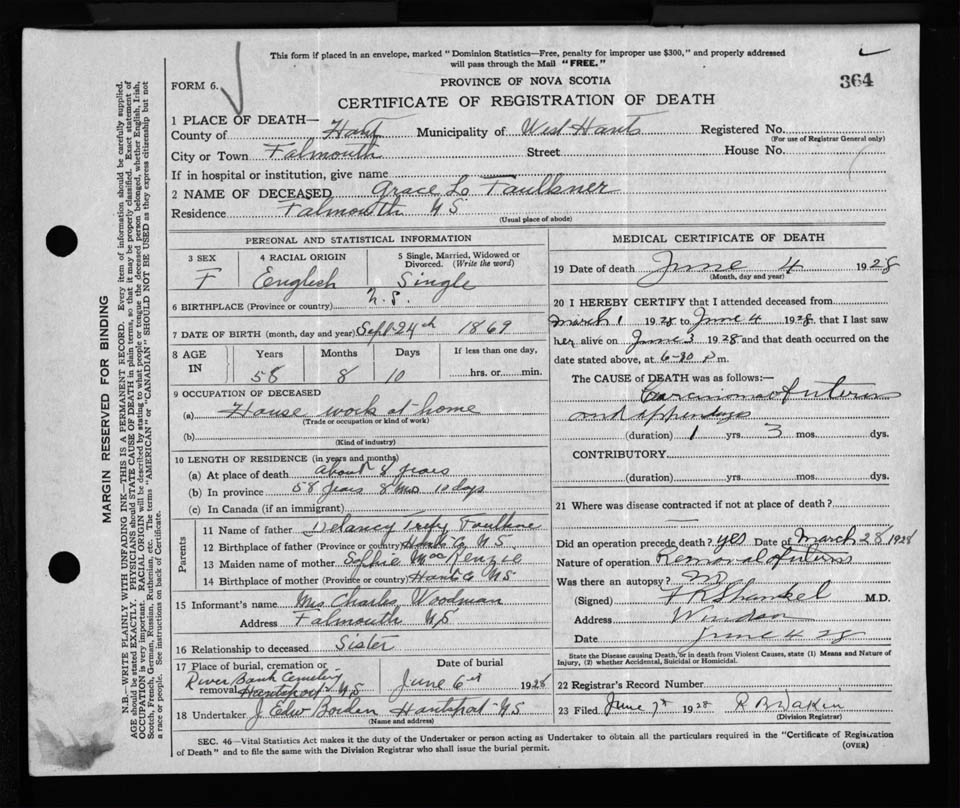 This form if placed in an envelope, marked "Dominion Statistics—Free, penalty for improper use $300," and properly addressed
will pass through the Mail "FREE."
FORM 6.
PROVINCE OF NOVA SCOTIA
364
CERTIFICATE OF REGISTRATION OF DEATH
1 PLACE OF DEATH—
County of Hants Municipality of West Hants Registered No.
(For use of Registrar General only)
City or Town Falmouth Street House No.
If in hospital or institution, give name
2 NAME OF DECEASED Grace L. Faulkner
Residence Falmouth NS
(Usual place of abode)
PERSONAL AND STATISTICAL INFORMATION
3 SEX 4 RACIAL ORIGIN 5 Single, Married, Widowed or Divorced. (Write the word)
F English Single
6 BIRTHPLACE (Province or country) N.S.
7 DATE OF BIRTH (month, day and year) Sept 24th 1869
8 AGE IN Years Months Days If less than one day,
58 8 10 hrs. or min.
9 OCCUPATION OF DECEASED
(a) House work at home
(Trade or occupation or kind of work)
(b)
(Kind of industry)
10 LENGTH OF RESIDENCE (in years and months)
(a) At place of death about 8 years
(b) In province 58 years 8 mos 10 days
(c) In Canada (if an immigrant)
Parents
11 Name of father Delancy Faulkner
12 Birthplace of father (Province or country) Hants Co NS
13 Maiden name of mother Sophie MacKenzie
14 Birthplace of mother (Province or country) Hants Co NS
15 Informant's name Mrs Charles Woodman
Address Falmouth NS
16 Relationship to deceased Sister
17 Place of burial, cremation or removal Date of burial
River Bank Cemetery
Hantsport NS June 6th 1928
18 Undertaker J. Edw Borden Hantsport NS
(Name and address)
MEDICAL CERTIFICATE OF DEATH
19 Date of death June 4 1928
(Month, day and year)
20 I HEREBY CERTIFY that I attended deceased from
March 1 1928 to June 4 1928, that I last saw
her alive on June 3 1928 and that death occurred on the
date stated above, at 6-30 P m.
The CAUSE of DEATH was as follows:—
Carcinoma of uterus
and appendages
(duration) 1 yrs. 3 mos. dys.
CONTRIBUTORY
(duration) yrs. mos. dys.
21 Where was disease contracted if not at place of death?
Did an operation precede death? yes Date of March 28 1928
Nature of operation Removal of uterus
Was there an autopsy? no
(Signed) F R Shankel M.D.
Address Windsor
Date June 4 28
State the Disease causing Death, or in death from Violent Causes, state (1) Means and Nature of
Injury, (2) whether Accidental, Suicidal or Homicidal.
22 Registrar's Record Number
23 Filed June 7th 1928
(Division Registrar)
SEC. 46—Vital Statistics Act makes it the duty of the Undertaker or person acting as Undertaker to obtain all the particulars required in the "Certificate of Registration
of Death" and to file the same with the Division Registrar who shall issue the burial permit.
(OVER)
MARGIN RESERVED FOR BINDING
N.B.—WRITE PLAINLY WITH UNFADING INK—THIS IS A PERMANENT RECORD. Every item of information should be carefully supplied.
AGE should be stated EXACTLY. PHYSICIANS should STATE CAUSE OF DEATH in plain terms, so that it may be properly classified. Exact statement of
OCCUPATION is very important. RACIAL ORIGIN will be described by stating to what people or tongue the deceased person belonged, whether English, Irish,
Scotch, French, German, Russian, Ruthenian, etc. The terms "AMERICAN" or "CANADIAN" SHOULD NOT BE USED as they express citizenship but not
a race or people. See instructions on back of Certificate.